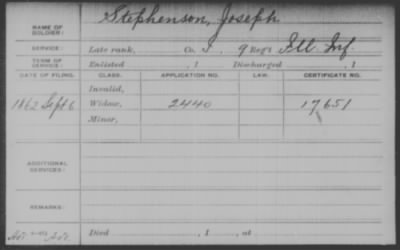 NAME OF SOLDIER: Stephenson, Joseph
SERVICE: Late rank, Co. I, 9 Reg't Ill Inf.
TERM OF SERVICE: Enlisted , 1 Discharged , 1
DATE OF FILING. CLASS. APPLICATION NO. LAW. CERTIFICATE NO.
Invalid,
1862 Sept 6 Widow, 2440 17651
Minor,
ADDITIONAL SERVICES:
REMARKS:
Died , 1 , at